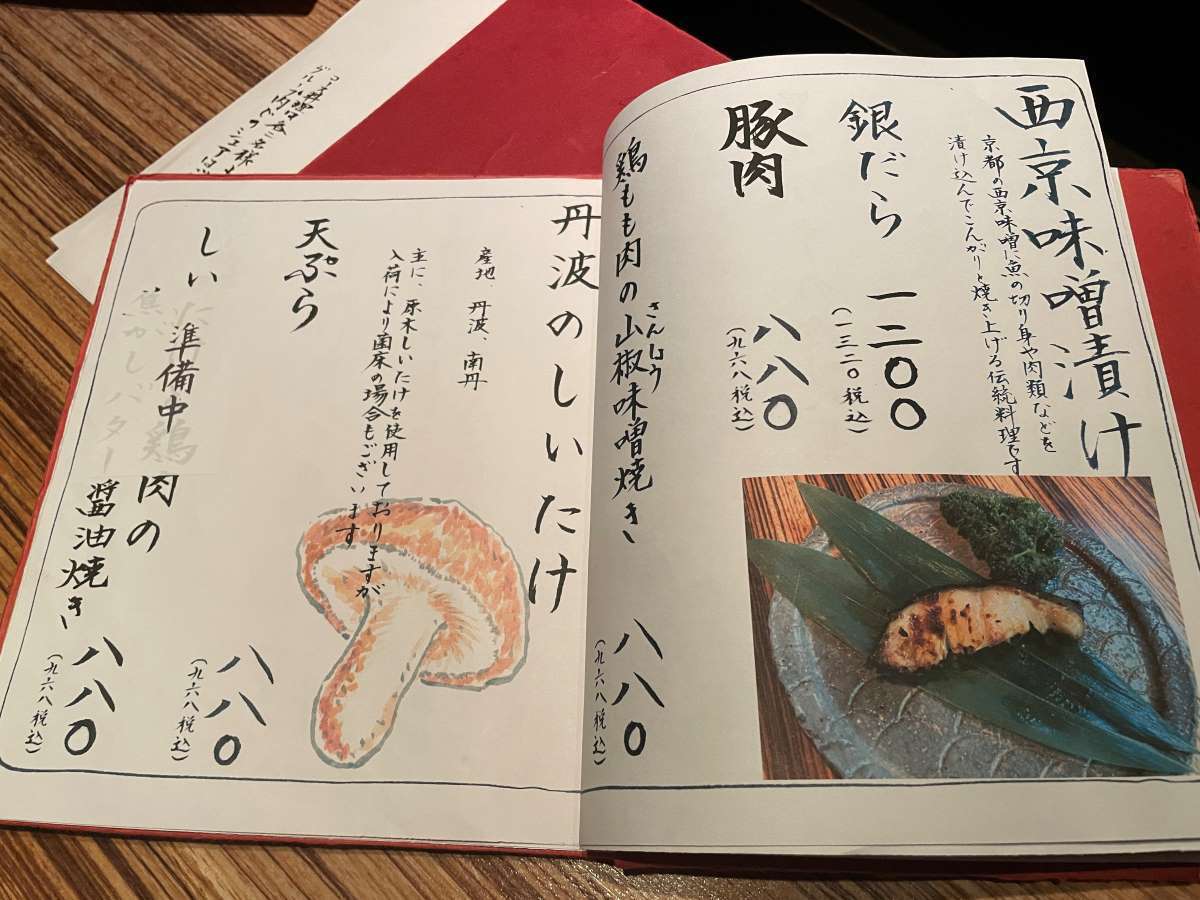 西京味噌漬け
京都の西京味噌に魚の切り身や肉類などを
漬け込んでこんがりと焼き上げる伝統料理です
銀だら
一二〇〇
(一三二〇税込)
豚肉
八八〇
(九六八税込)
鶏もも肉の山椒味噌焼き
さんしょう
八八〇
(九六八税込)
丹波のしいたけ
産地、丹波、南丹
主に、原木しいたけを使用しておりますが、
入荷により菌床の場合もございます
天ぷら
八八〇
(九六八税込)
しい
肉の
準備中
焦がしバター
醤油焼き
八八〇
(九六八税込)
コース料理は各二名様
グループ内でのシェアは